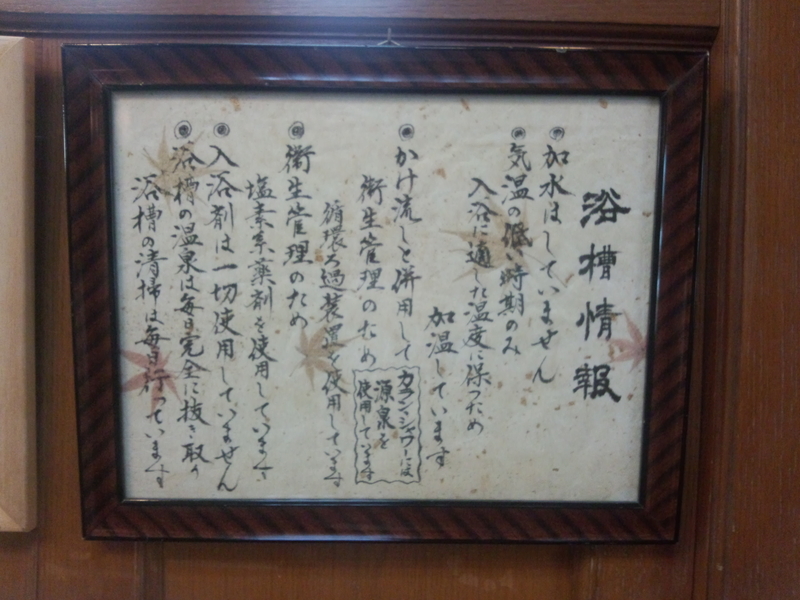 浴槽情報
◎加水はしていません
◎気温の低い時期のみ
入浴に適した温度に保つため
加温しています
◎かけ流しと併用して
衛生管理のため
循環ろ過装置を使用しています
カラン・シャワーには
源泉を
使用しています
◎衛生管理のため
塩素系薬剤を使用しています
◎入浴剤は一切使用していません
◎浴槽の温泉は毎日完全に抜き取り
浴槽の清掃は毎日行っています